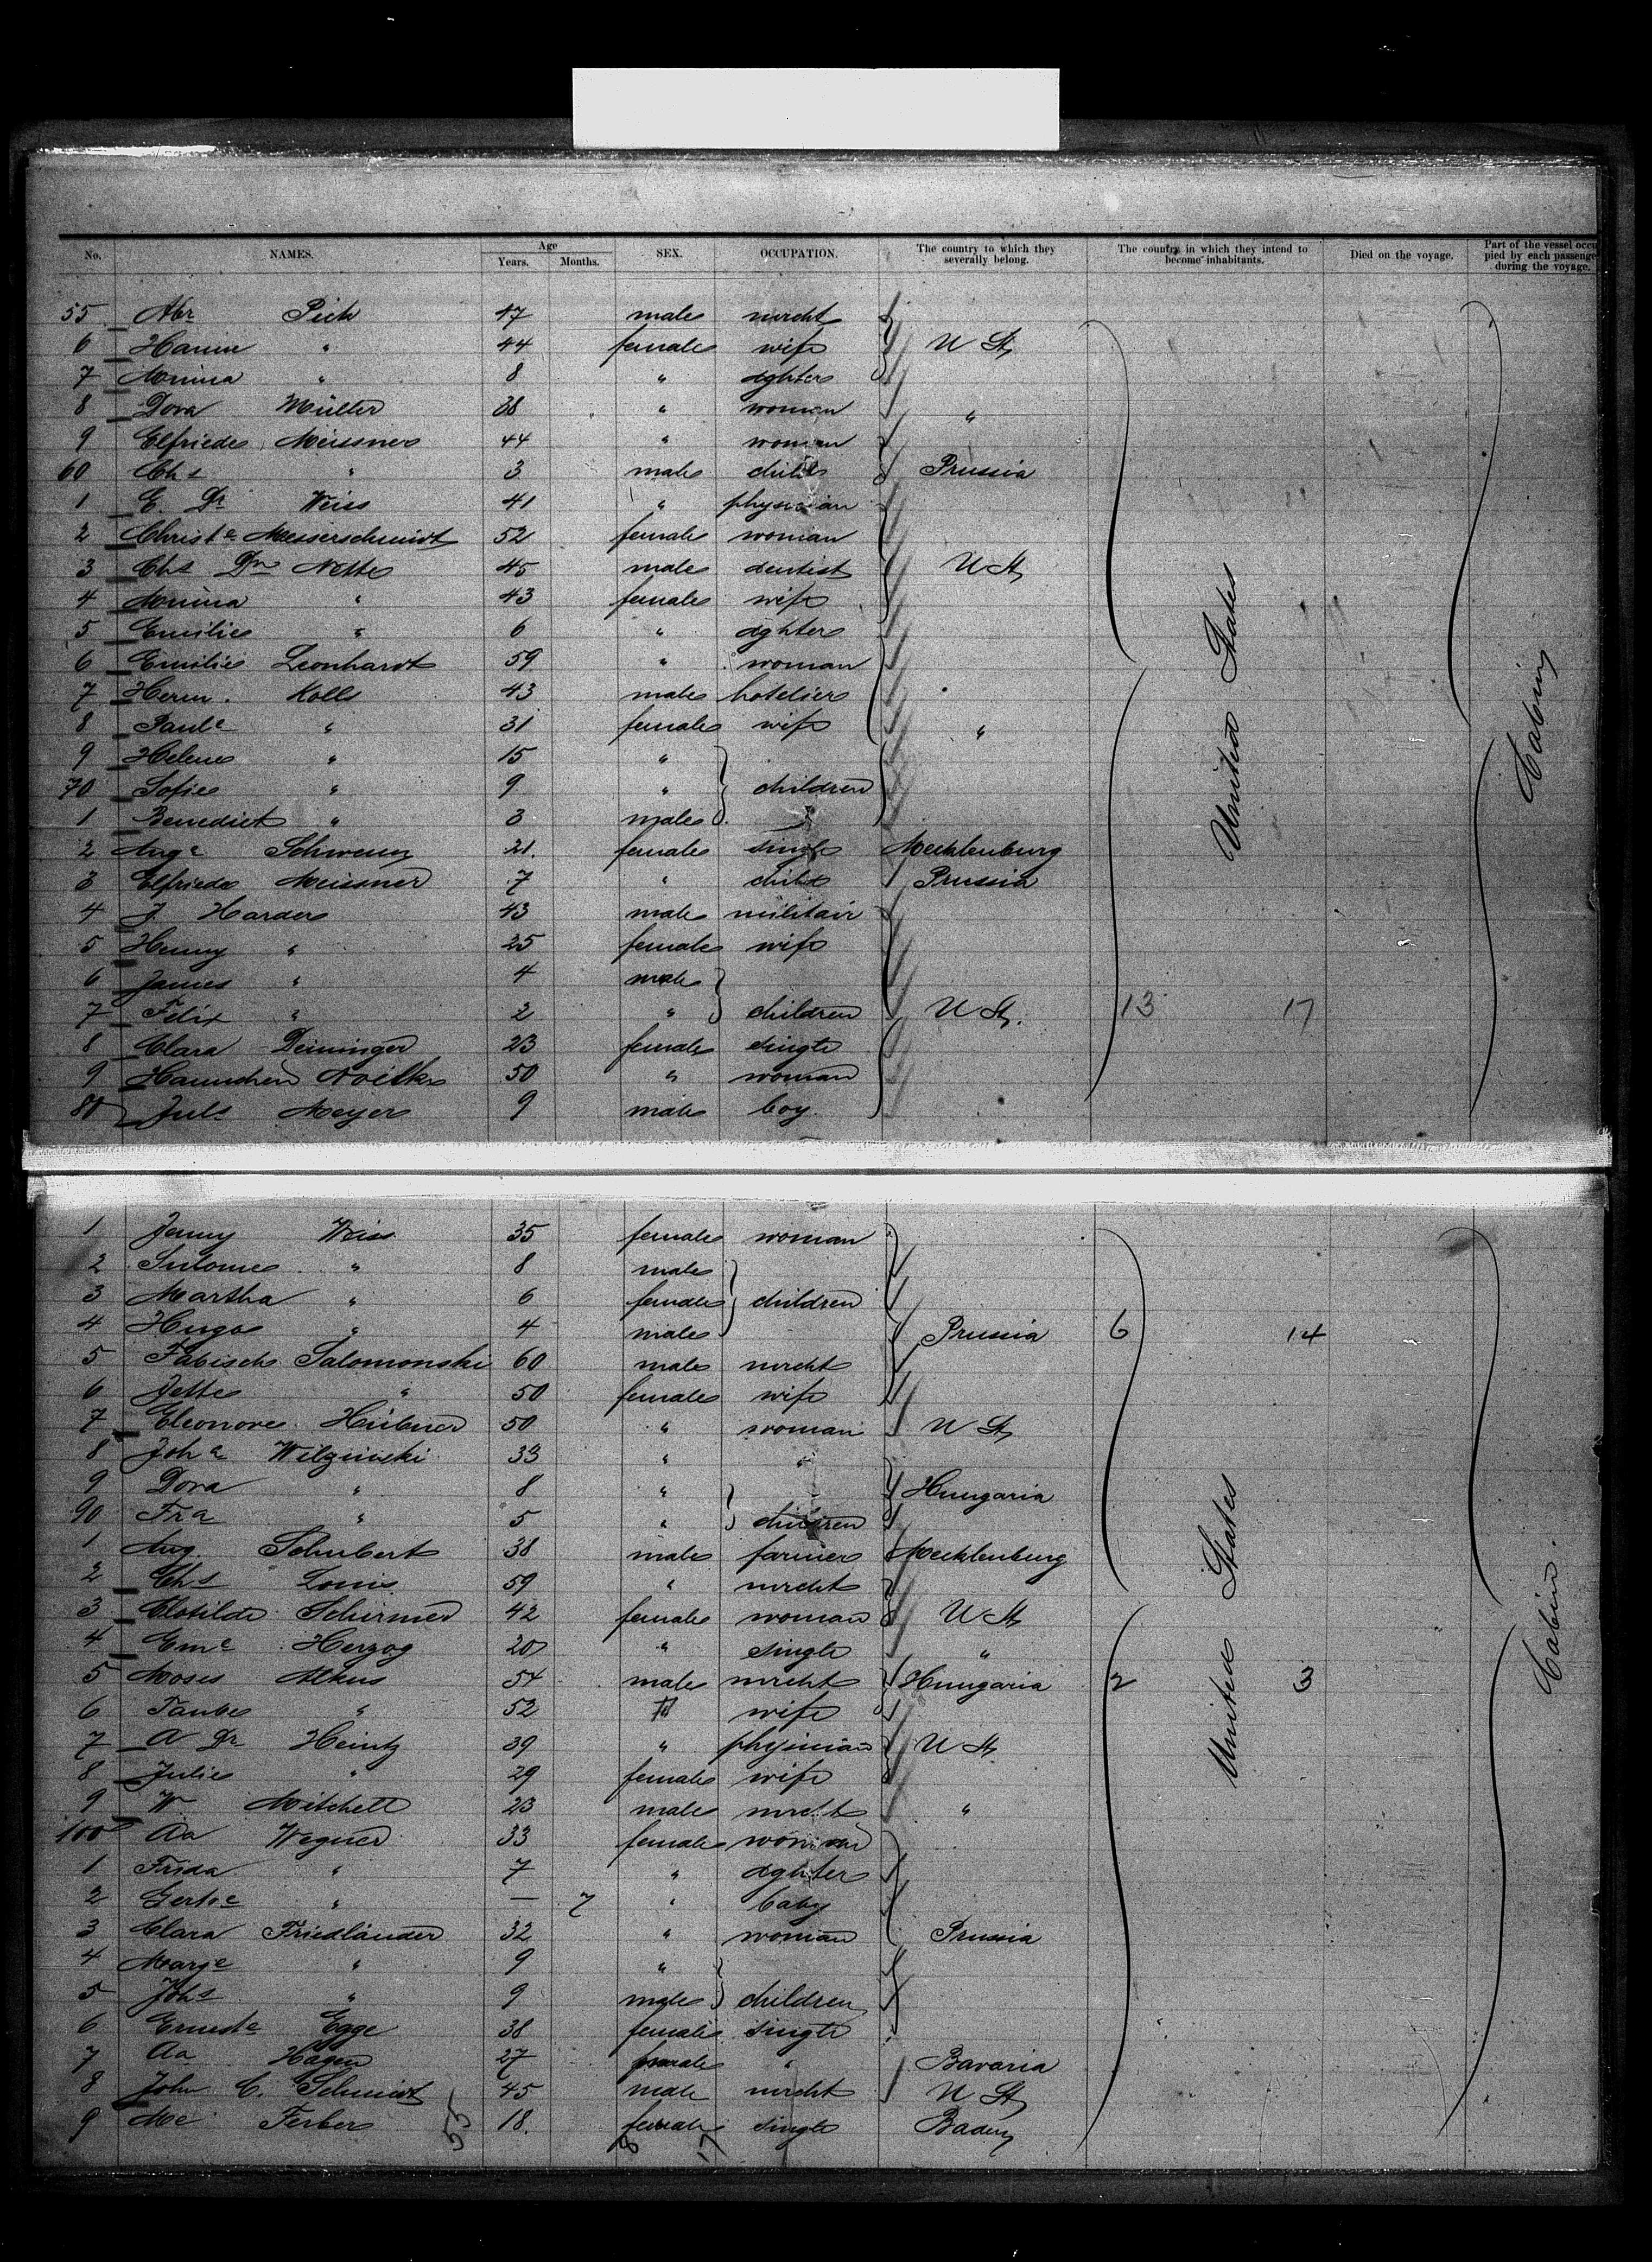 No. NAMES. Age Years. Months. SEX. OCCUPATION. The country to which they severally belong. The country in which they intend to become inhabitants. Died on the voyage. Part of the vessel occu pied by each passenge during the voyage.
55 Abr Pick 47 male mrcht
6 " 44 female wife U St
7 Minna " 8 " dghter
8 Dora Müller 38 " woman "
9 Elfriede Meissner 44 " woman
60 Chs " 3 male child Prussia
1 E. Dr Weiss 41 " physician
2 Christe Messerschmidt 52 female woman
3 Chs Dr Nette 45 male dentist U St
4 Minna " 43 female wife
5 Emilie " 6 " dghter
6 Emilie Leonhardt 59 " woman
7 Herm. Kolls 43 male hotelier
8 Paule " 31 female wife "
9 Helene " 15 "
70 Sofie " 9 " children
1 Benedict " 3 male
2 Auge 21. female single Mecklenburg
3 Elfriede Meissner 7 " child Prussia
4 J. Harder 43 male militair
5 Henny " 25 female wife
6 James " 4 male
7 Felix " 2 " children U St. 13 17
8 Clara Deininger 23 female single
9 Hannchen 50 " woman
80 Juls Meyer 9 male boy.
United States
Cabin
1 Jenny Weiss 35 female woman
2 " 8 male
3 Martha " 6 female children
4 Hugo " 4 male Prussia 6 14
5 Fabisch Salomonski 60 male mrcht
6 Jette " 50 female wife
7 Eleonore Hübner 50 " woman U St
8 Joha Wilzinski 33 " "
9 Dora " 8 " Hungaria
90 Fra " 5 " children
1 Aug Schubert 38 male farmer Mecklenburg
2 Chs Louis 59 " mrcht
3 Clotilde Schirmer 42 female woman U St
4 Eme Herzog 20 " single "
5 Moses 54 male mrcht Hungaria 2 3
6 Taube " 52 wife
7 A Dr Heintz 39 " physician U St
8 Julie " 29 female wife
9 W. Mitchell 23 male mrcht "
100 Aa Wegner 33 female woman
1 Frida " 7 " dghter
2 Gertre " — 7 " baby
3 Clara Friedländer 32 " woman Prussia
4 Marge " 9 "
5 Johs " 9 male children
6 Erneste Egge 38 female single
7 Aa Hagen 27 female " Bavaria
8 John C. Schmidt 45 male mrcht U St
9 Me Ferber 18. female single Baden
United States
Cabin.
55 8 17